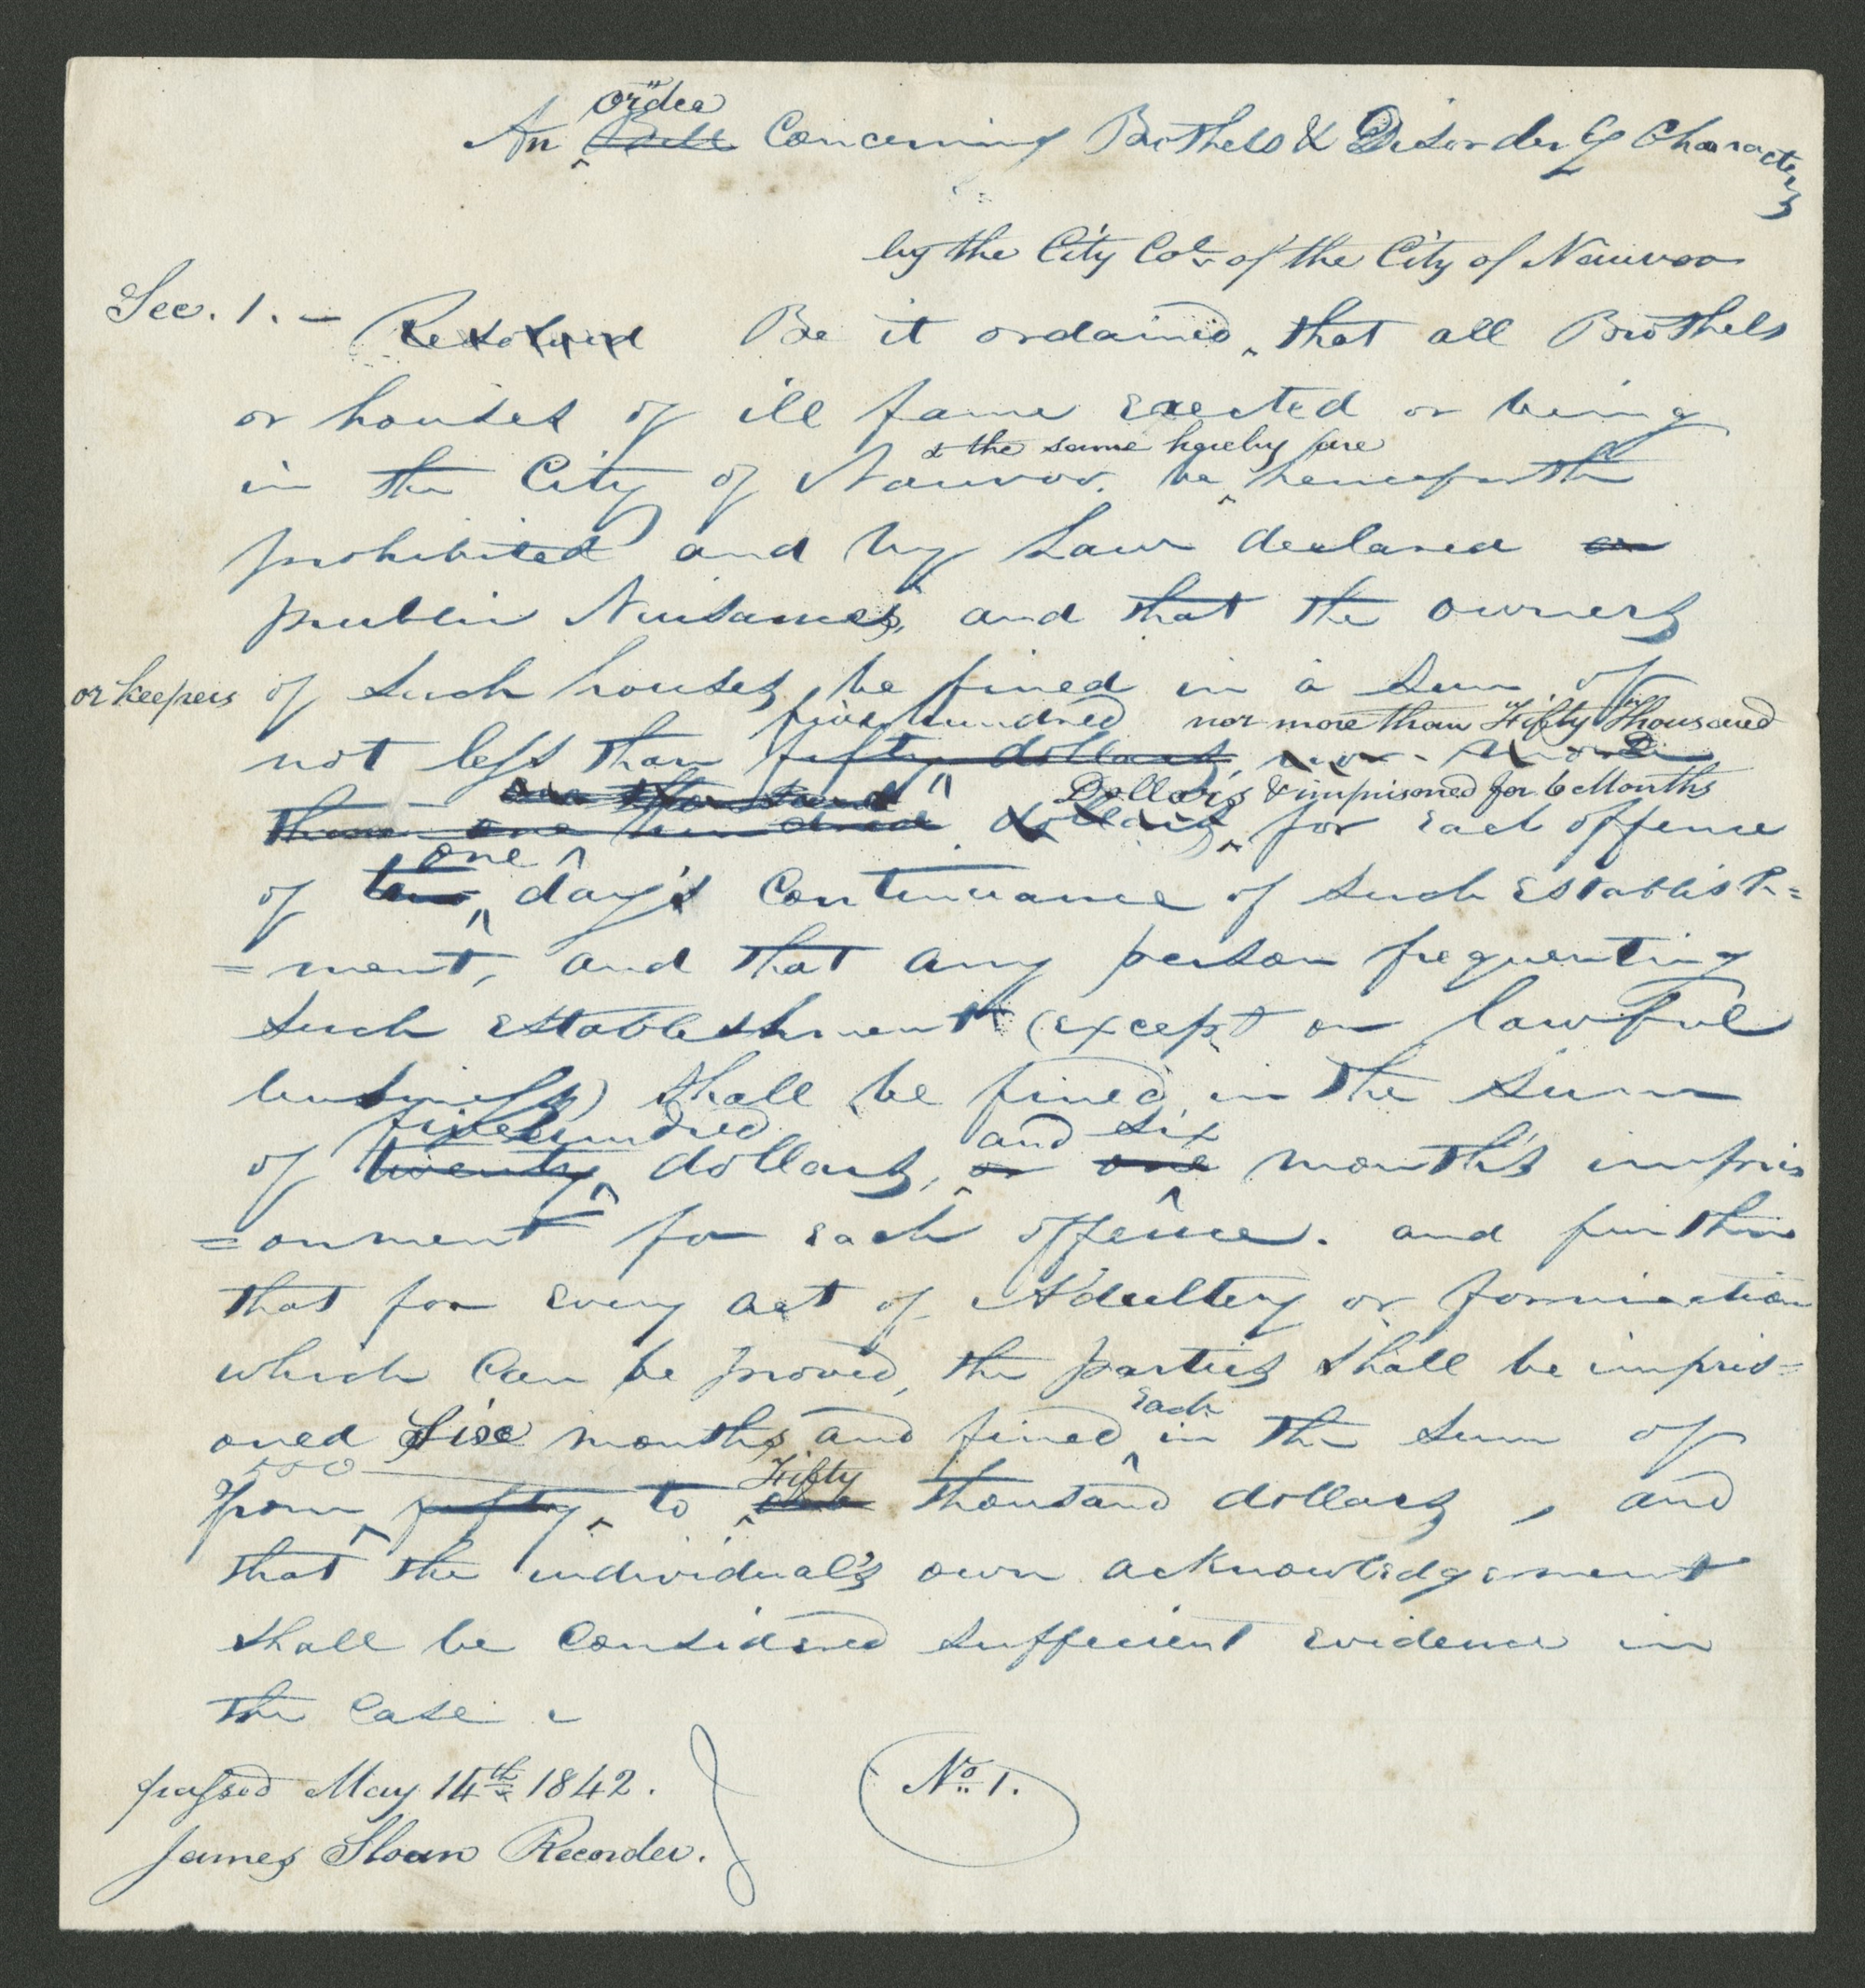 An ordce Bill Concerning Brothels & Disorderly Characters
by the City Col. of the City of Nauvoo
Sec. 1. — Resolved Be it ordained that all Brothels
or houses of ill fame erected or being
& the same hereby are
in the City of Nauvoo. be henceforth
prohibited and by Law declared
public Nuisances, and that the owners
or keepers of such houses be fined in a sum of
five hundred nor more than Fifty Thousand
not less than fifty dollars, nor more
one thousand Dollars & imprisoned for 6 Months
than one hundred dollars for each offence
one
of ten day's continuance of such establish=
=ment, and that any person frequenting
such establishment (except on lawful
business) shall be fined in the sum
five hundred and six
of twenty dollars, or one month's impris
=onment for each offence. and further
that for every act of Adultery or fornication
which can be proved, the parties shall be impris=
Each
oned Six months and fined in the sum of
500 Fifty
from fifty to one thousand dollars, and
that the individual's own acknowledgement
shall be considered sufficient evidence in
the case.
passed May 14th 1842.
No. 1.
James Sloan Recorder.